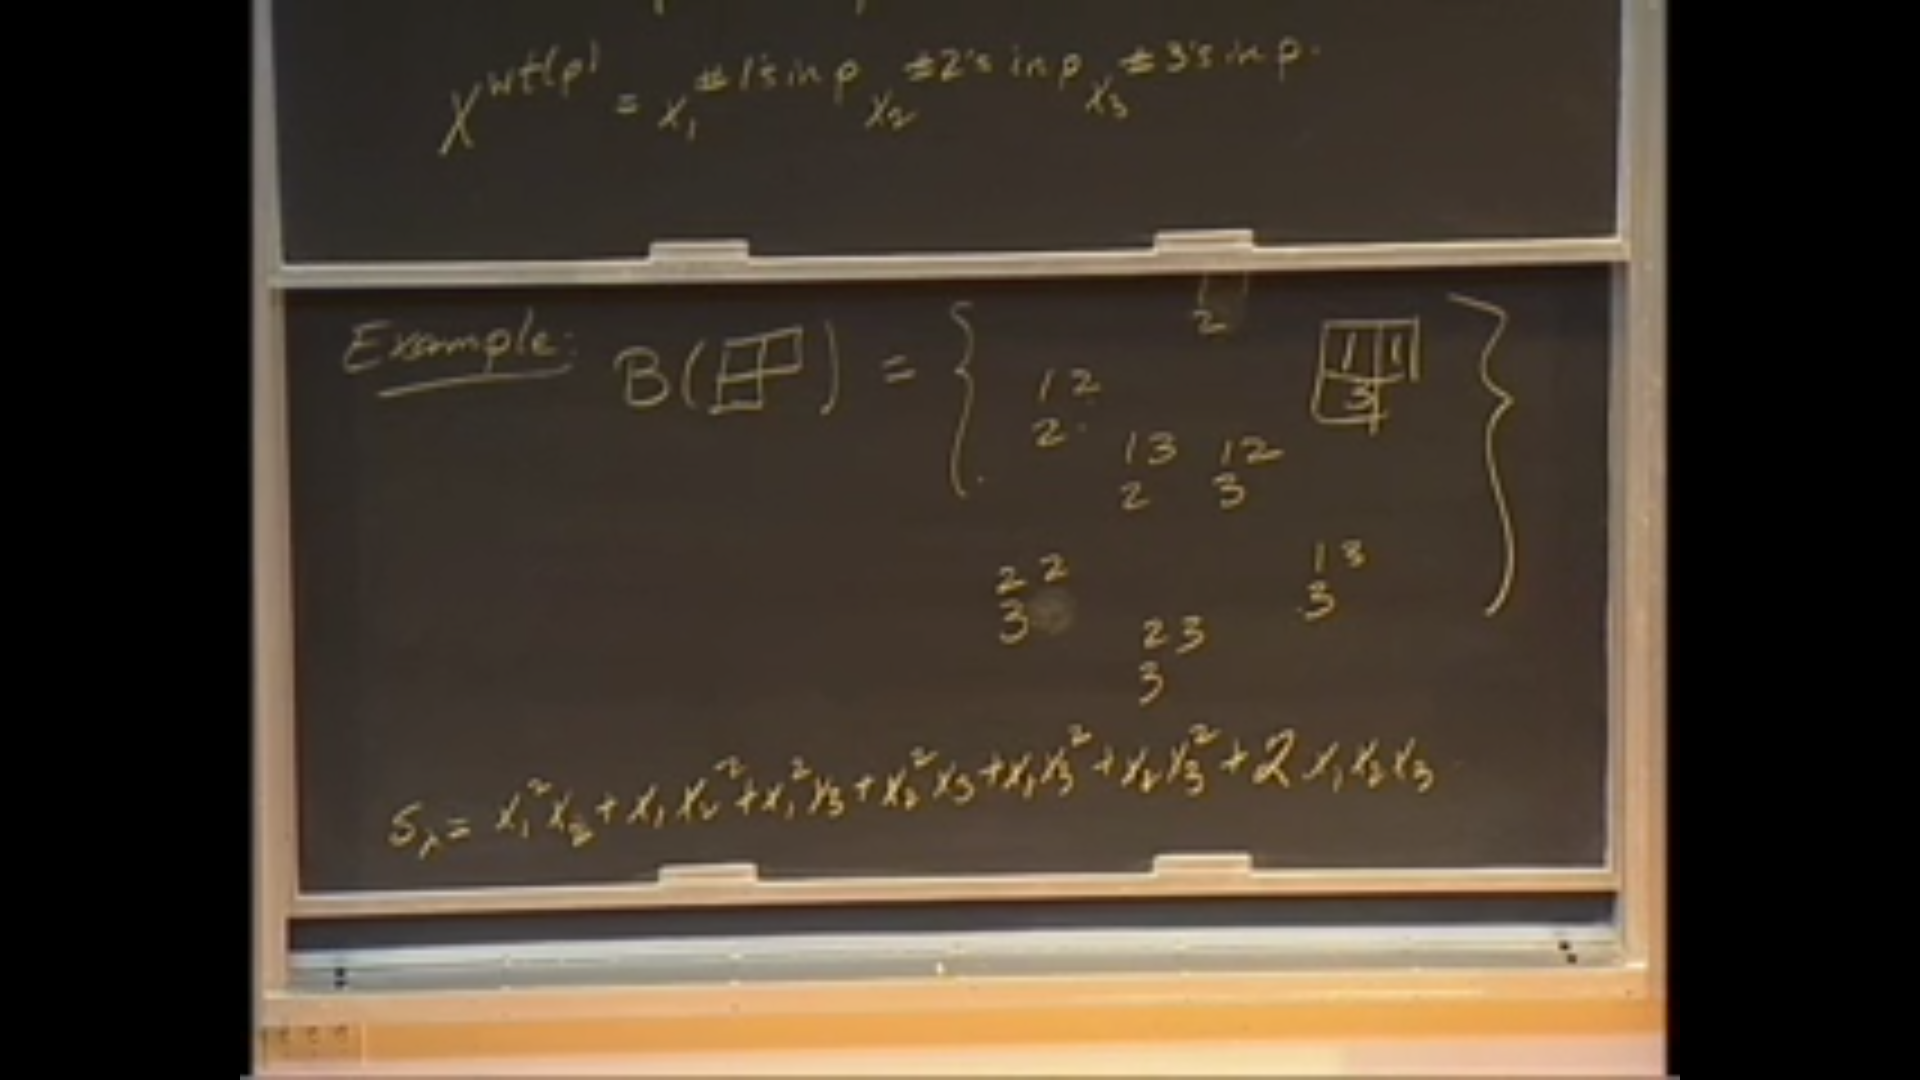 X^{wt(p)} = x_1^{#1's in p} x_2^{#2's in p} x_3^{#3's in p}.
Example: B( ) = {
2
1 2
2
1 1
3
1 3
2
1 2
3
2 2
3
1 3
3
2 3
3
}
s_λ = x_1^2 x_2 + x_1 x_2^2 + x_1^2 x_3 + x_2^2 x_3 + x_1 x_3^2 + x_2 x_3^2 + 2 x_1 x_2 x_3